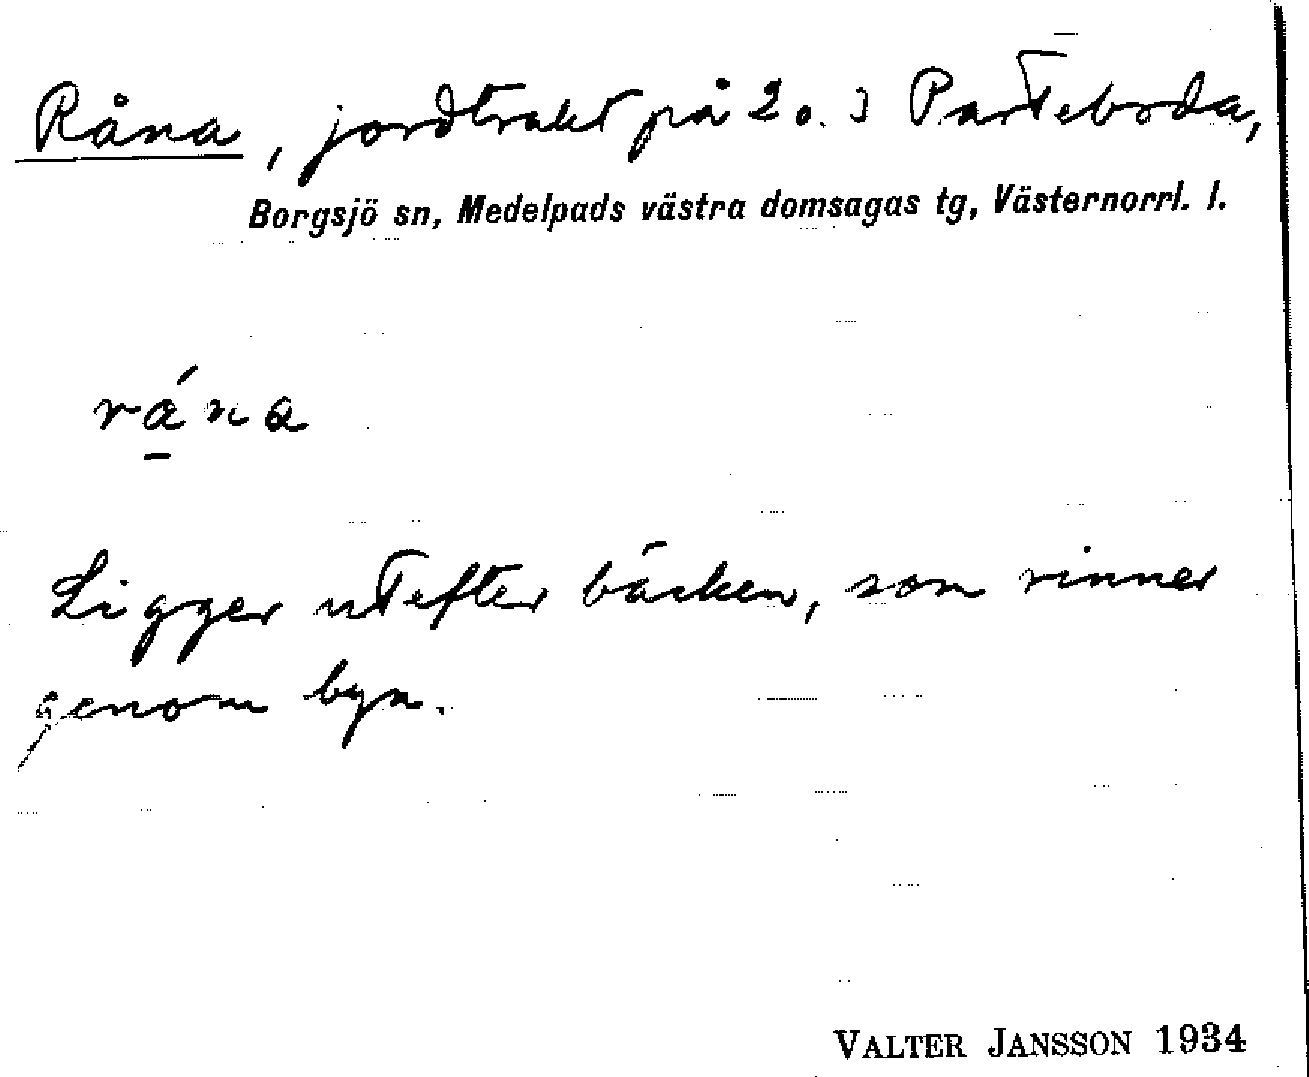 Råna, jordtrakt på 2 o. 3 Parteboda,
Borgsjö sn, Medelpads västra domsagas tg, Västernorrl. l.
rána
Ligger utefter bäcken, som rinner
genom byn.
VALTER JANSSON 1934